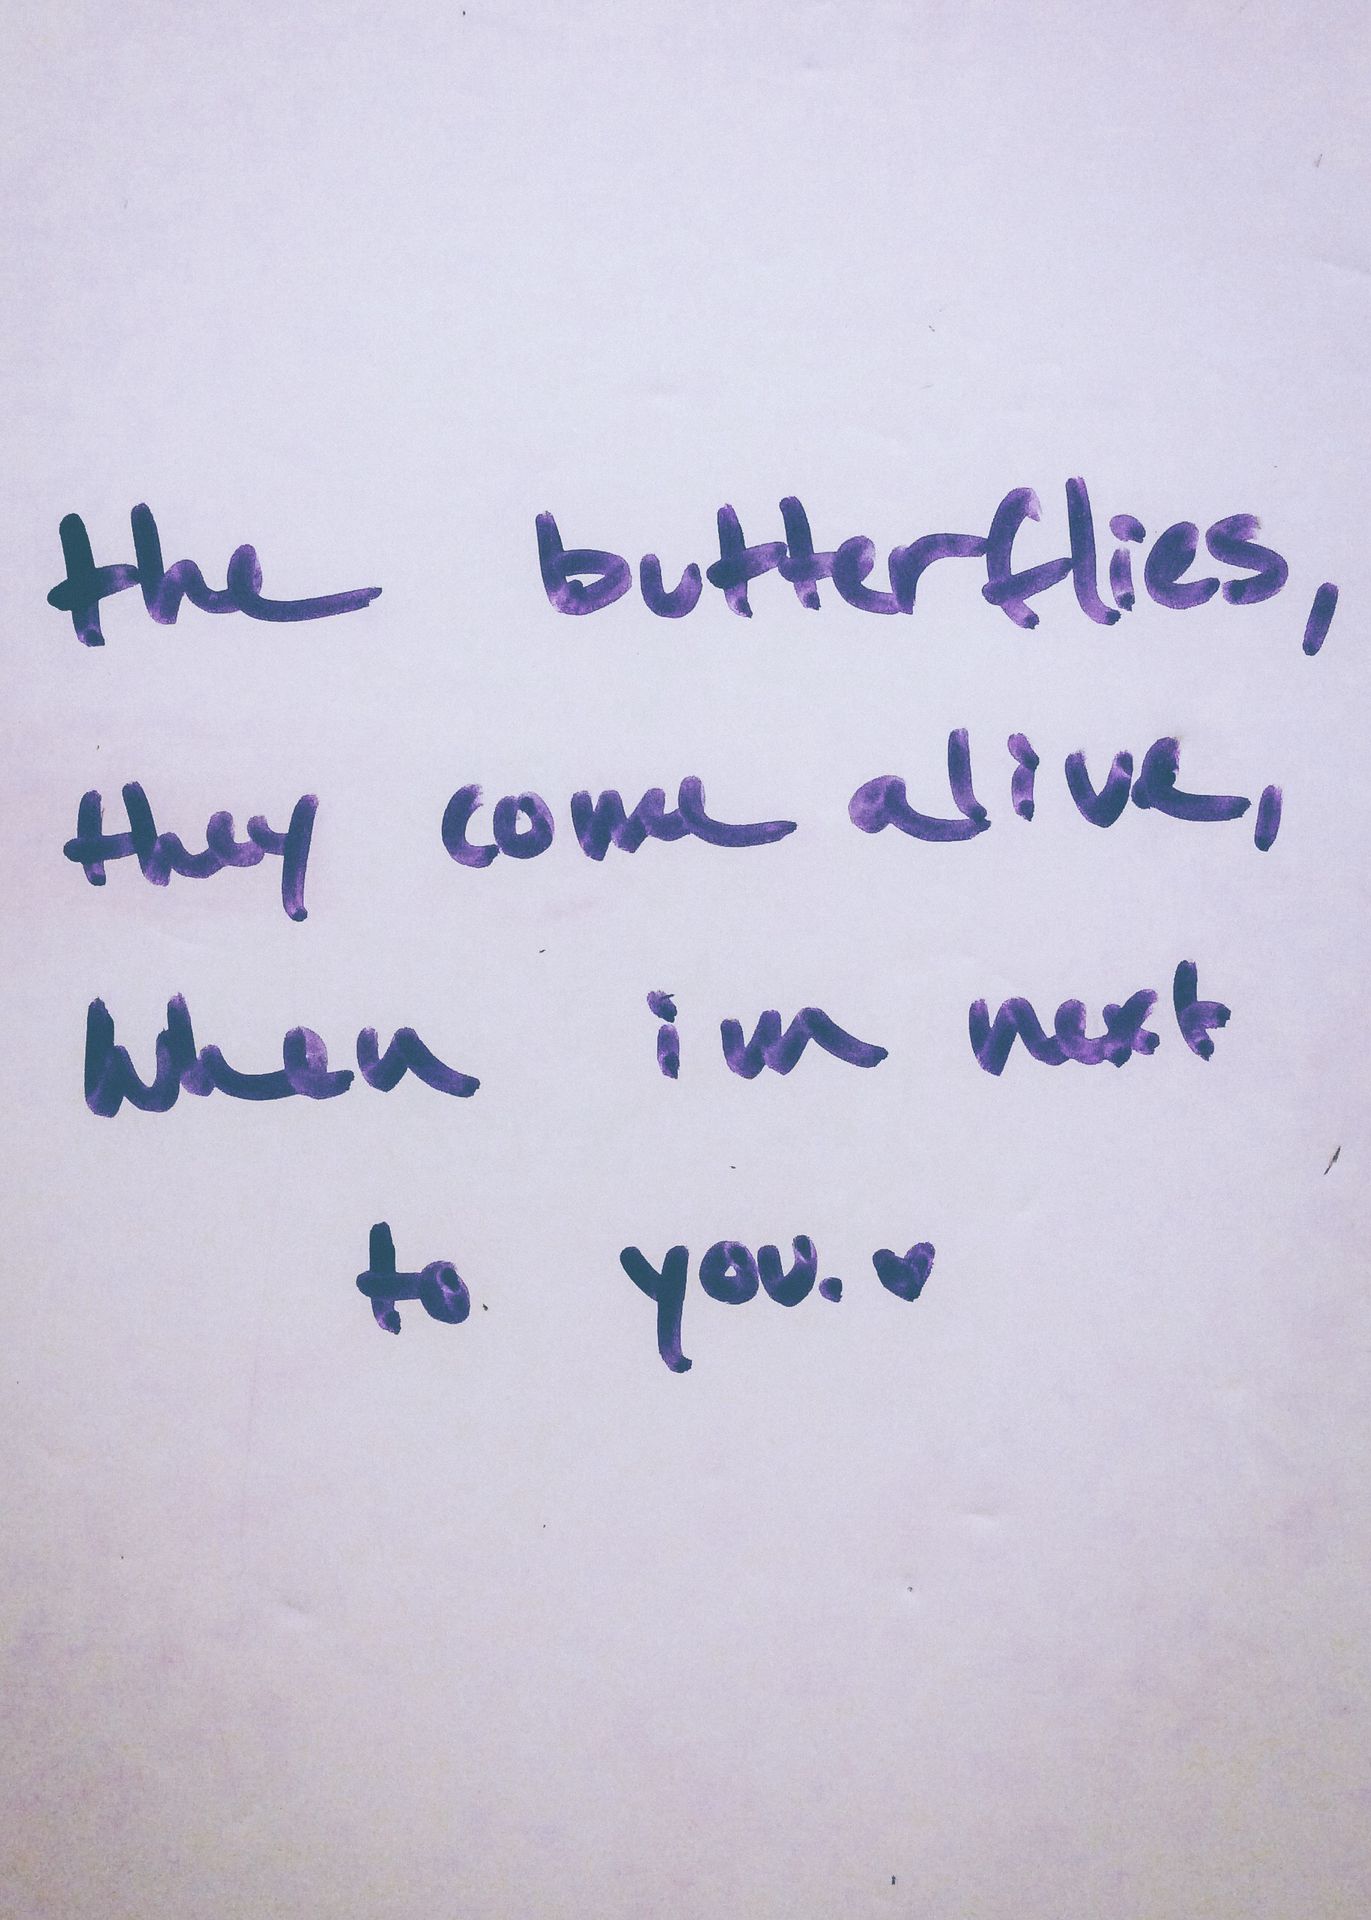 the butterflies,
they come alive,
When im next
to you. ♥